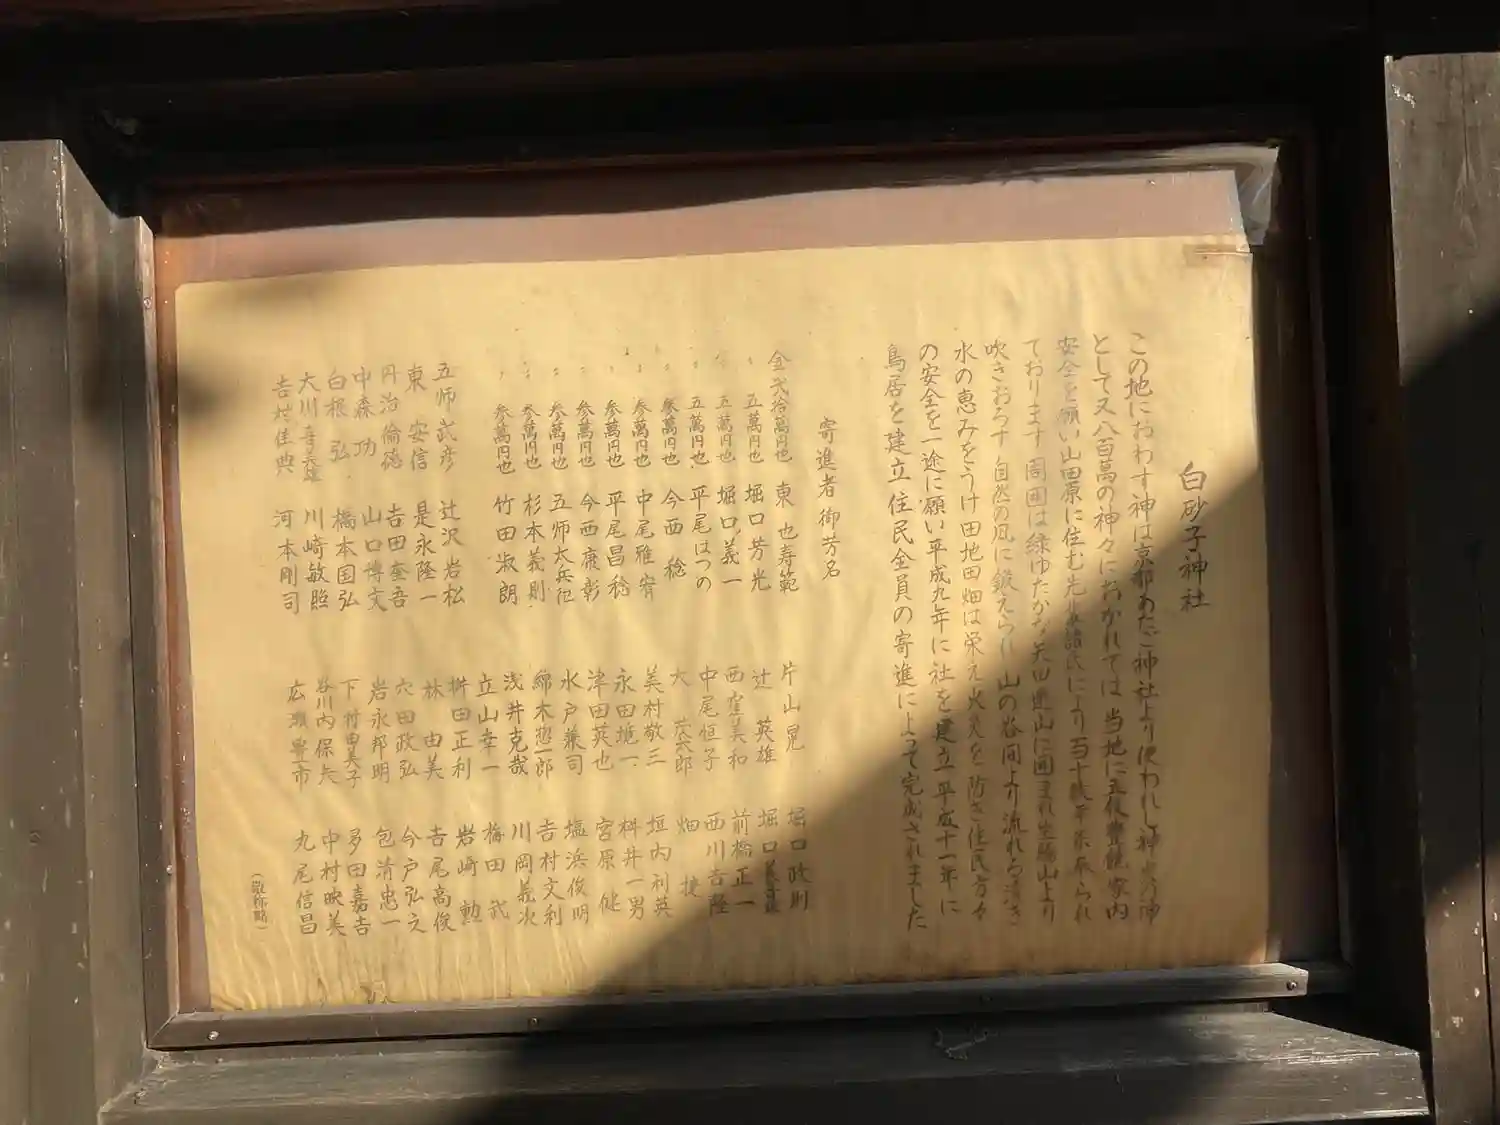 白砂子神社
この地におわす神は京都あたご神社より使われし神 火の神
として又八百萬の神々におかれては 当地に五伎豊穣 家内
安全を願い山田原に住む先業諸民により百十歳辛
ております 周囲は緑ゆたかな矢田連山に囲まれ生駒山より
吹きおろす 自然の風に鍛えられ 山の谷間より流れる清き
水の恵みをうけ田地田畑は栄え火災を防ぎ住民方々
の安全を一途に願い平成九年に社を建立 平成十一年に
鳥居を建立 住民全員の寄進によって完成されました
寄進者御芳名
金弐拾萬円也 東 也寿範
〃 五萬円也 堀口芳光
〃 五萬円也 堀口義一
〃 五萬円也 平尾はつの
〃 参萬円也 今西 稔
〃 参萬円也 中尾雅宥
〃 参萬円也 平尾昌稔
〃 参萬円也 今西康彰
〃 参萬円也 五師太兵
〃 参萬円也 杉本義則
〃 参萬円也 竹田淑朗
五師 武彦 辻沢 岩松
東 安信 是永隆一
丹治倫徳 吉田奎吾
中森 功 山口博文
白根 弘 橋本国弘
大川喜義 川崎敏照
吉村佳典 河本剛司
片山晃 堀口政則
辻 英雄 堀口
西窪美和 前橋正一
中尾恒子 西川吉隆
大 郎 畑 捷
美村敬三 垣内利英
永田 一 桝井一男
津田英也 宮原 健
水戸兼司 塩浜俊明
綿木惣一郎 吉村文利
浅井克哉 川岡義次
立山幸一 梅田 武
桝田正利 岩崎 勲
林 由美 吉尾高俊
穴田政弘 今戸弘之
岩永邦明 包清忠一
下村由美子 多田嘉吉
谷川内保矢 中村映美
広瀬豊市 丸尾信昌
（敬称略）